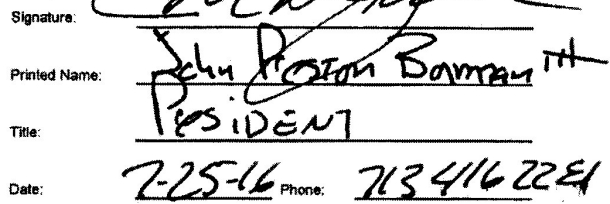 Signature:
Printed Name: John Preston Bowman III
Title: PresiDENT
Date: 7-25-16 Phone: 713 416 22